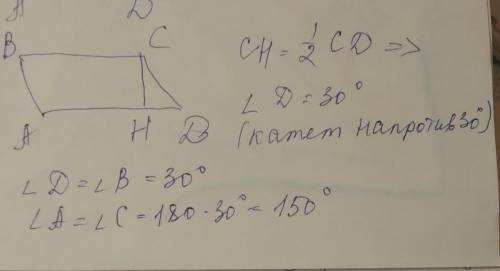 A D
B C
A H D
CH = 1/2 CD =>
∠ D = 30°
(катет напротив 30°)
∠ D = ∠ B = 30°
∠ A = ∠ C = 180 - 30° = 150°